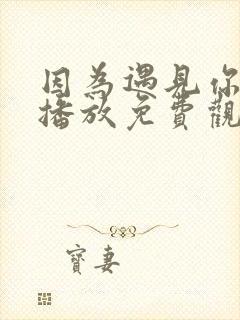 因為遇見你
播放免費觀
寶妻